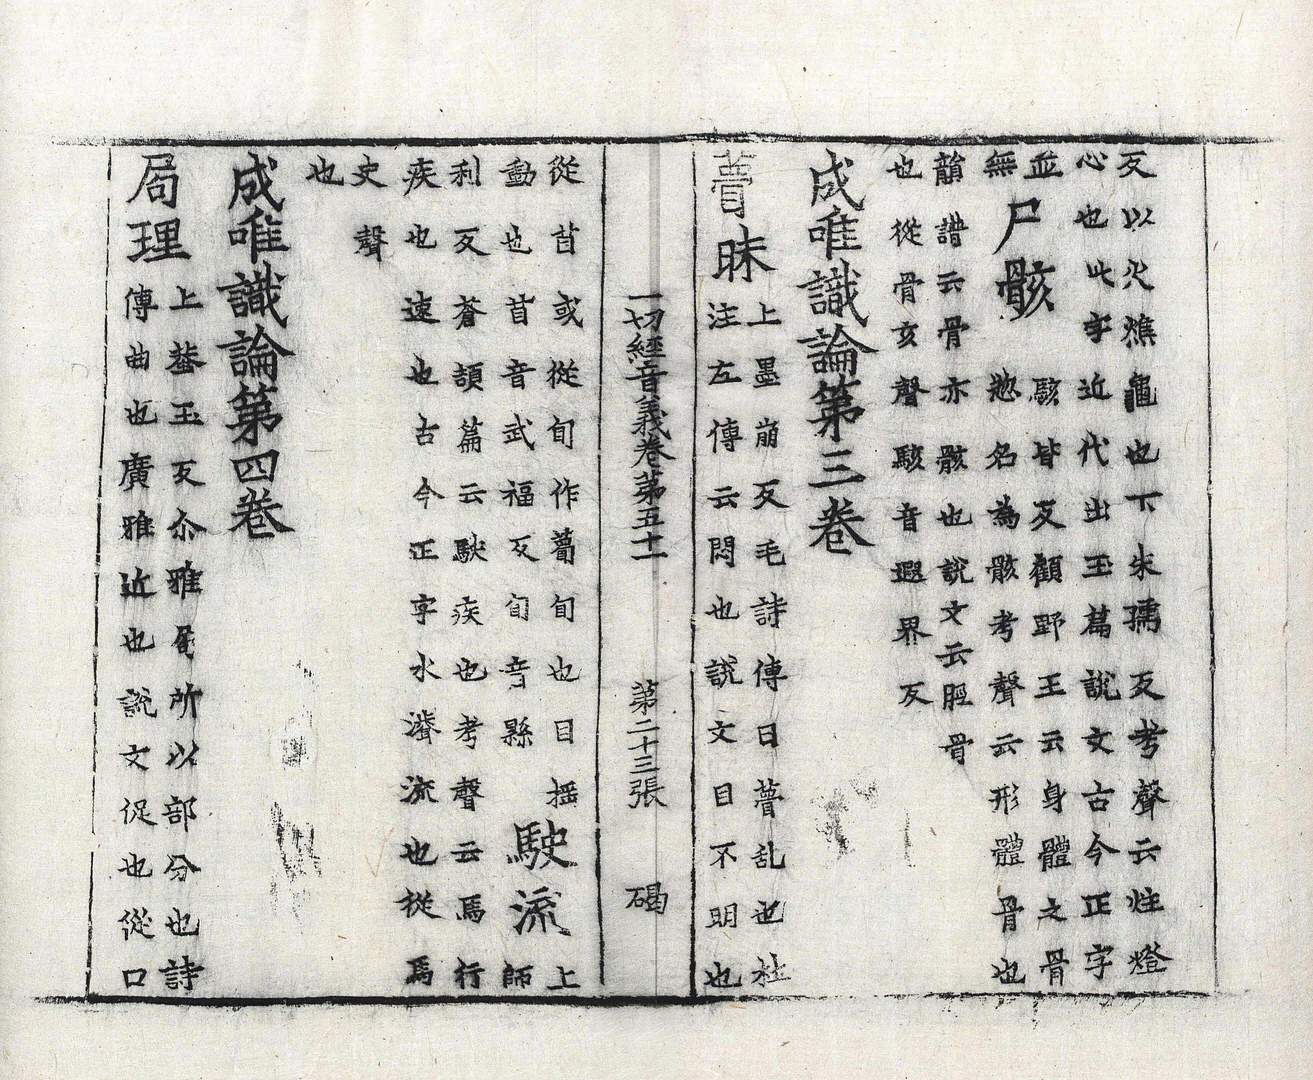 反以火燋龜也下朱孺反考聲云炷燈
心也此字近代出玉篇說文古今正字
並無
尸骸
駭皆反顧野王云身體之骨
惣名為骸考聲云形體骨也
韻譜云骨亦骸也說文云脛骨
也從骨亥聲駭音遐界反
成唯識論第三卷
瞢昧
上墨崩反毛詩傳曰瞢乱也杜
注左傳云悶也說文目不明也
一切經音義卷第五十一 第二十三張 碣
從苜或從旬作蔔旬也目搖
動也苜音武福反旬音縣
駛流
上師
利反蒼頡篇云駛疾也考聲云馬行
疾也速也古今正字水濟流也從馬
史聲
也
成唯識論第四卷
局理
上蛬玉反尒雅局所以部分也詩
傳曲也廣雅近也說文促也從口